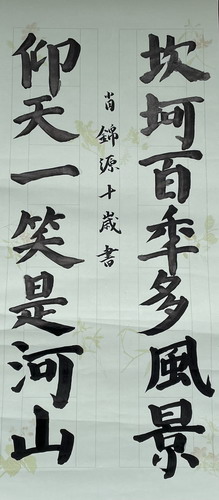 坎坷百年多風景
仰天一笑是河山
肖錦源十歲書